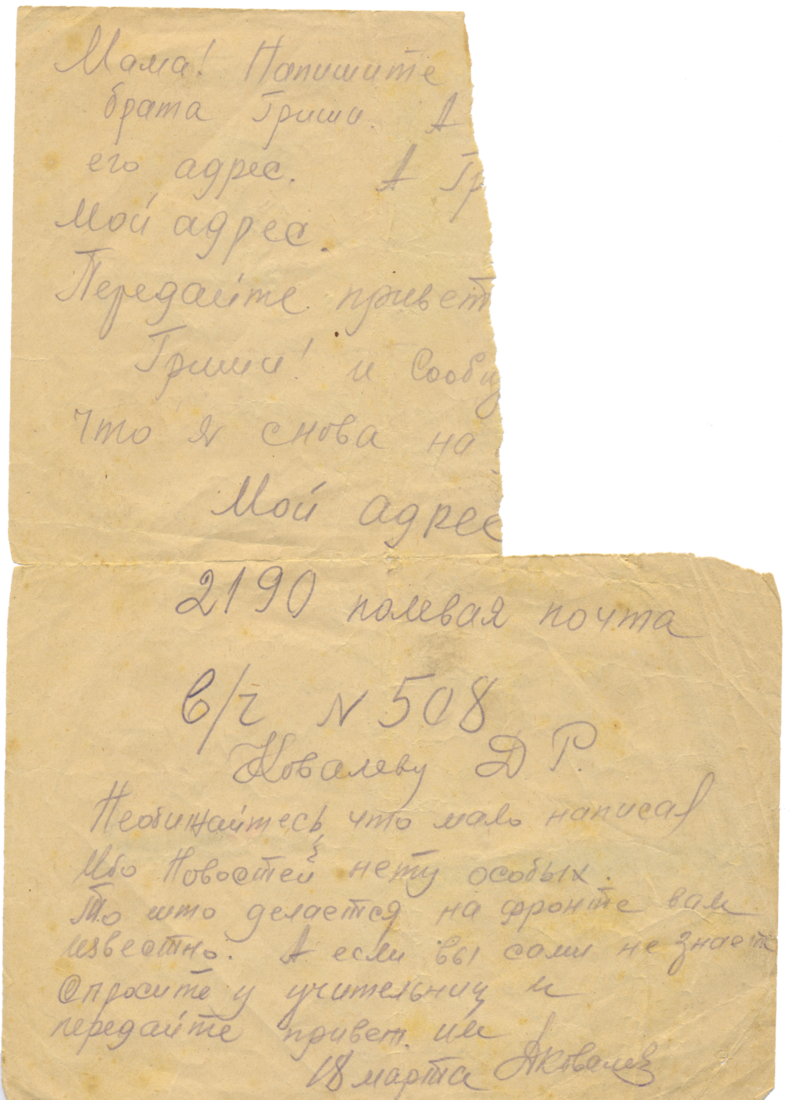 Мама! Напишите
брата Гриши. А
его адрес. А Гр
Мой адрес.
Передайте привет
Гриши! и Сообщ
Что я снова на
Мой адрес
2190 полевая почта
в/ч N 508
Ковалеву Д Р.
Необижайтесь, что мало написал
Ибо Новостей нету особых.
То што делается на фронте вам
известно. А если вы сами не знаете
Спросите у учительниц и
передайте привет им
18 марта ДКовалев